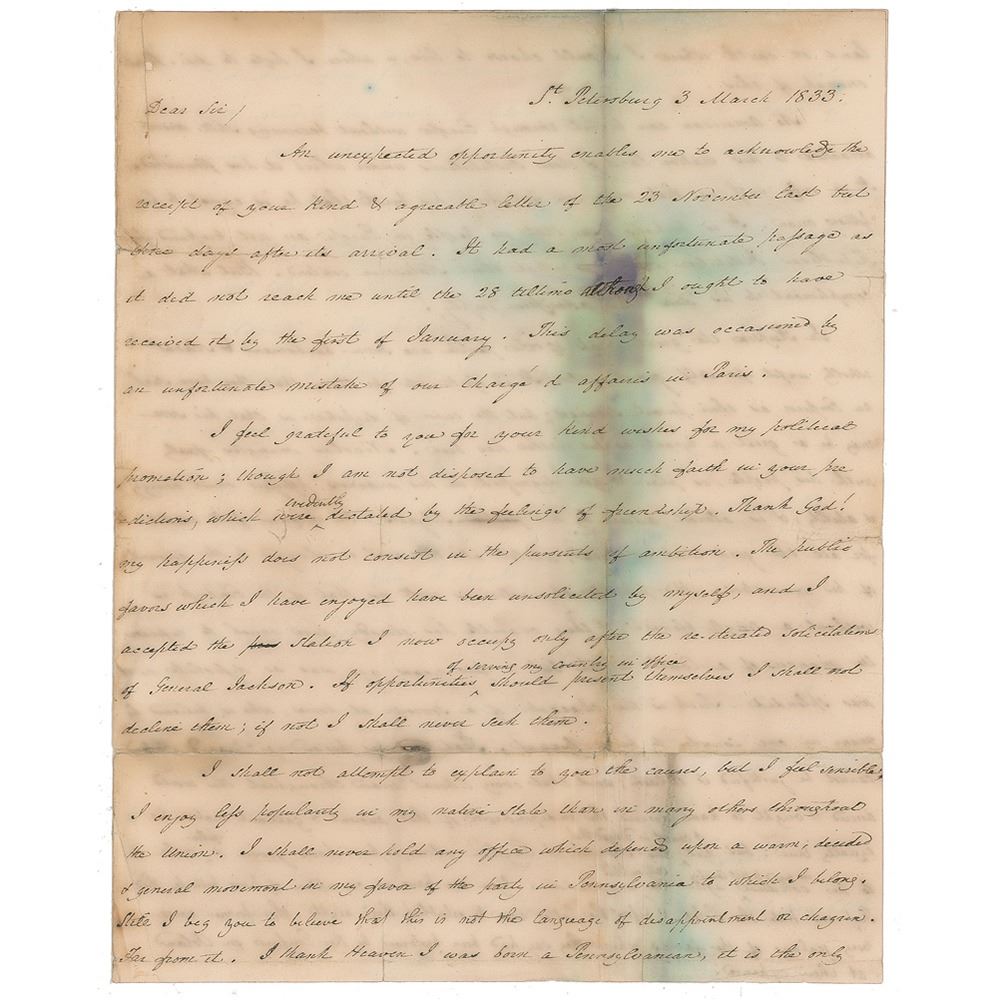 St. Petersburg 3 March 1833.
Dear Sir/
An unexpected opportunity enables me to acknowledge the
receipt of your kind & agreeable letter of the 23 November last but
three days after its arrival. It had a most unfortunate passage as
it did not reach me until the 28 ultimo although I ought to have
received it by the first of January. This delay was occasioned by
an unfortunate mistake of our Chargé d affairs in Paris.
I feel grateful to you for your kind wishes for my political
promotion; though I am not disposed to have much faith in your pre
dictions, which were evidently dictated by the feelings of friendship. Thank God!
my happiness does not consist in the pursuits of ambition. The public
favors which I have enjoyed have been unsolicited by myself, and I
accepted the station I now occupy only after the re-iterated solicitations
of General Jackson. If opportunities of serving my country in office should present themselves I shall not
decline them; if not I shall never seek them.
I shall not attempt to explain to you the causes, but I feel sensible,
I enjoy less popularity in my native State than in many others throughout
the Union. I shall never hold any office which depends upon a warm, decided
& general movement in my favor of the party in Pennsylvania to which I belong.
Still I beg you to believe that this is not the language of disappointment or chagrin.
Far from it. I thank Heaven I was born a Pennsylvanian, it is the only